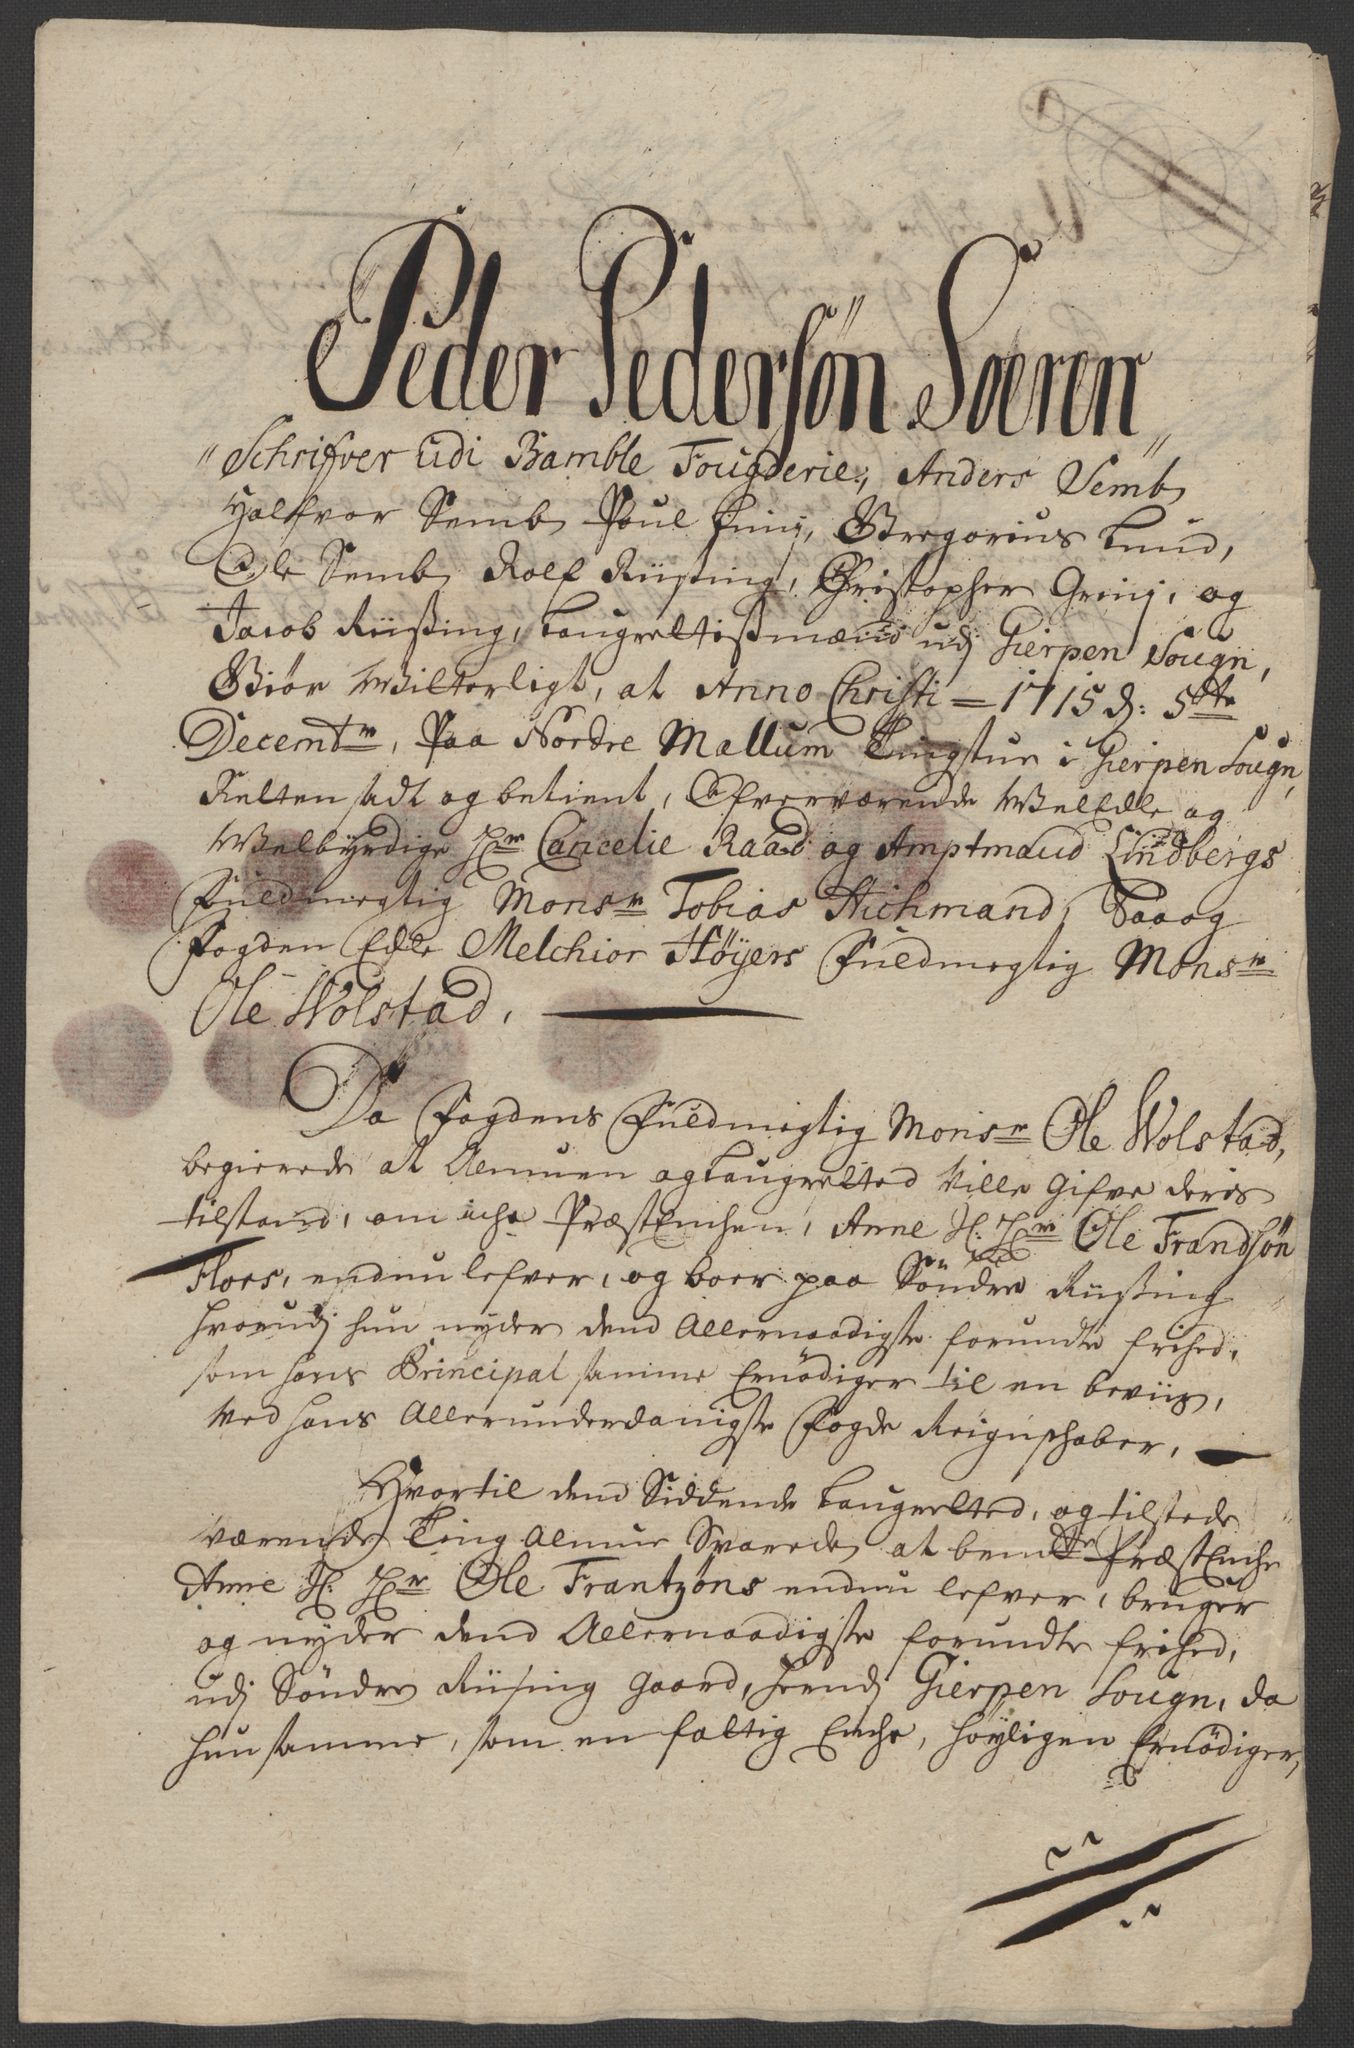 Peder Pedersön Soeren
Schrifver udi Bamble Fougderie, Anders Semb,
Halfvor Semb, Poul Enni, Gregorius Lund,
Ole Semb, Rolf Riising, Christopher Grini, og
Jacob Riising, Laugrettismænd udj Gierpen Sougn,
Giör Witterligt, at Anno Christi = 1715 d: 5te
Decembr, Paa Nordre Mællum Tingstue i Gierpen Sougn,
Retten sadt og betient, Ofverværende WelEdle og
Welbyrdige Hr Cancelie Raad og Amptmand Lindbergs
Fuldmegtig Monsr Tobias Stichmand, Saa og
Fogden Edle Melchior Höyers Fuldmegtig Monsr
Ole Wolstad,
Da Fogdens Fuldmegtig Monsr Ole Wolstad,
begierede at Almuen og Laugretted Wille Gifve deris
tilstand, om iche PræstEnchen, Anne Sl: Hr Ole Frandsön
Floes, endnu lefver, og boer paa Söndre Riising
hvorudj hun nyder dend Allernaadigste forundte frihed,
som hans Principal samme Ernödiger til en beviis,
Ved hans Allerunderdanigste Fogde Reignschaber,
Hvortil dend Siddende Laugretted, og tilstede
værende Ting Almue Svarede, at bemte PræstEnche
Anne Sl: Hr Ole Frantzöns endnu lefver, bruger
og nyder dend Allernaadigste forundte frihed,
udj Söndre Riising Gaard, her udj Gierpen Sougn, da
hun samme, som en fattig Enche, höyligen Ernödiger,